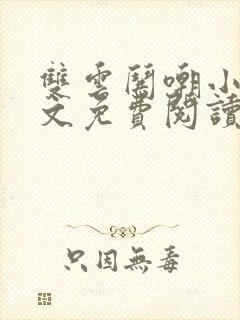 雙雲鬧嘲小
文免費閱讀
只因無毒